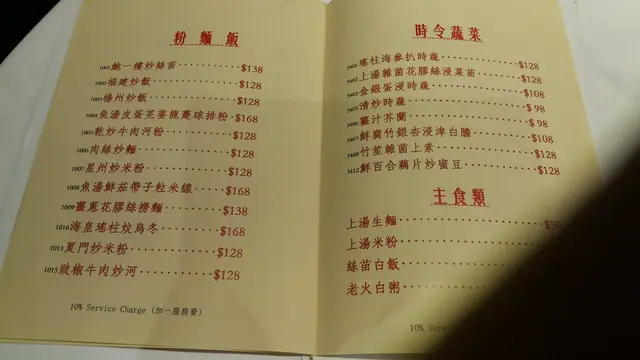 粉麵飯
1001鮑一樓炒絲苗 $138
1002福建炒飯 $128
1003揚州炒飯 $128
1004魚湯皮蛋芫荽龍躉球排粉 $168
1005乾炒牛肉河粉 $128
1006肉絲炒麵 $128
1007星州炒米粉 $128
1008魚湯鮮茄帶子粒米線 $168
1009薑蔥花膠絲撈麵 $138
1010海皇瑤柱炆烏冬 $168
1013夏門炒米粉 $128
1015豉椒牛肉炒河 $128
10% Service Charge (加一服務費)
時令蔬菜
3401瑤柱海參扒時蔬 $128
3402上湯雜菌花膠絲浸菜苗 $128
3403金銀蛋浸時蔬 $108
3405清炒時蔬 $98
3406薑汁芥蘭 $98
3407鮮腐竹銀杏浸津白膽 $108
3408竹笙雜菌上素 $128
3412鮮百合藕片炒蜜豆 $128
主食類
上湯生麵
上湯米粉
絲苗白飯
老火白粥
10%